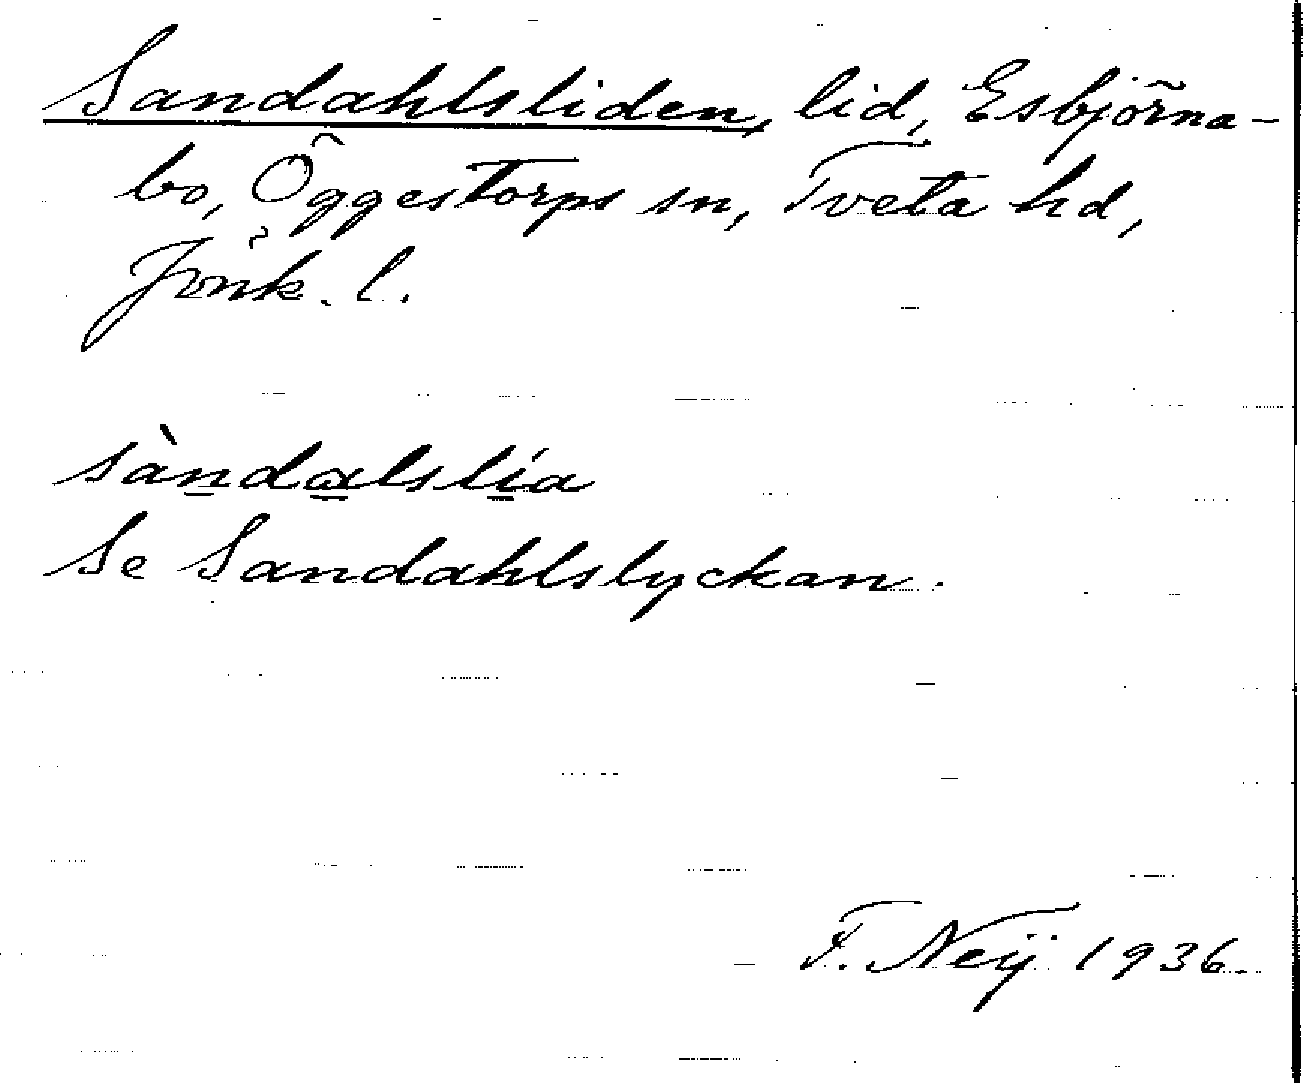 Sandahlsliden, lid, Esbjörna-
bo, Öggestorps sn, Tveta hd,
Jönk. l.
sàndalslía
Se Sandahlslyckan.
F. Neij 1936.